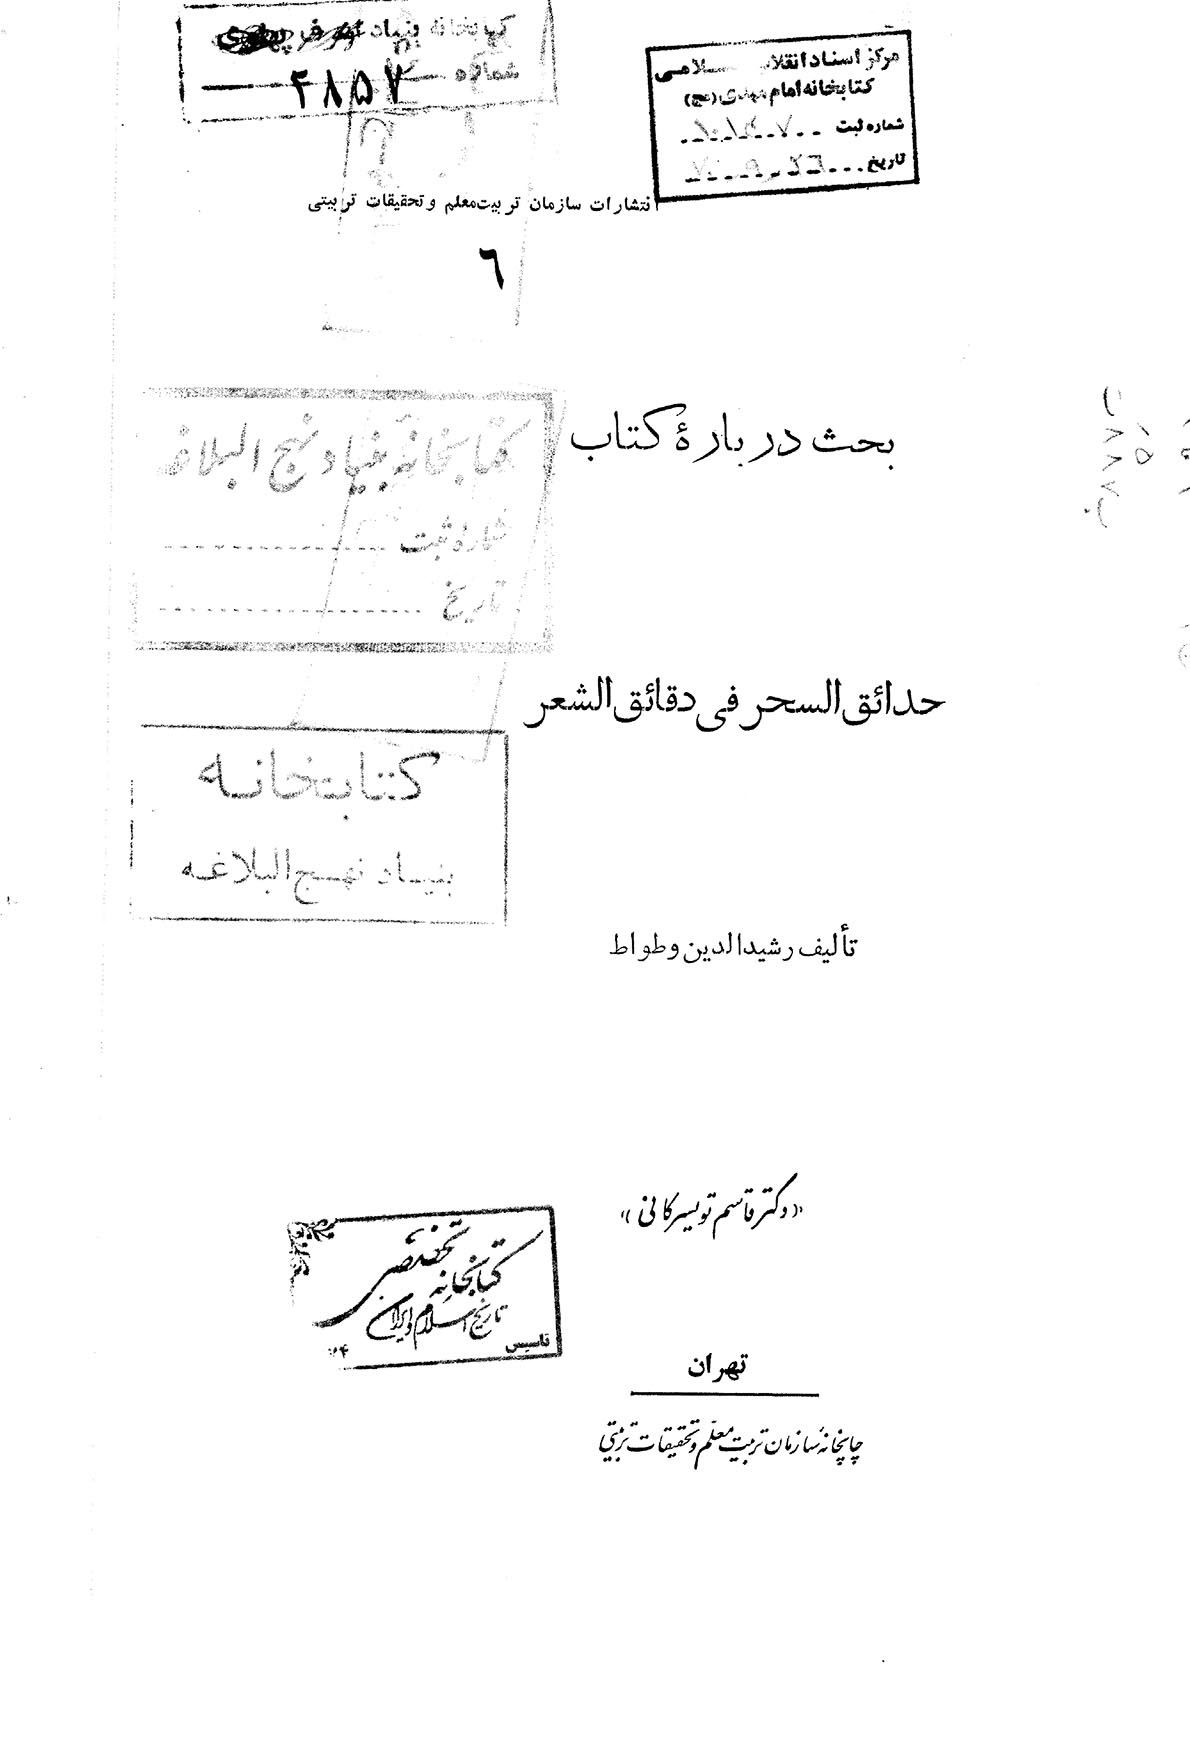 کتابخانه بنیاد
شماره ۴۸۵۷
مرکز اسناد انقلاب اسلامی
کتابخانه امام مهدی (عج)
شماره ثبت
تاریخ
انتشارات سازمان تربیت معلم و تحقیقات تربیتی
٦
بحث دربارهٔ کتاب
کتابخانه بنیاد نهج البلاغه
شماره ثبت
تاریخ
حدائق السحر فی دقائق الشعر
کتابخانه
بنیاد نهج البلاغه
تألیف رشیدالدین وطواط
«دکتر قاسم تویسرکانی»
کتابخانه تخصصی
تاریخ اسلام و ایران
تاسیس
تهران
چاپخانهٔ سازمان تربیت معلّم و تحقیقات تربیتی